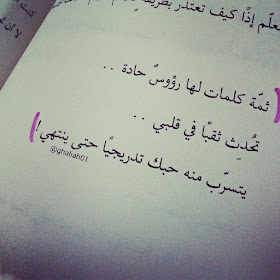 علّم إذًا كيف تعتذر بطريقة
ثمّة كلمات لها رؤوسٌ حادة ..
تُحْدِث ثقبًا في قلبي ..
يتسرّب منه حبك تدريجيًا حتى ينتهي!
@ghaliah01